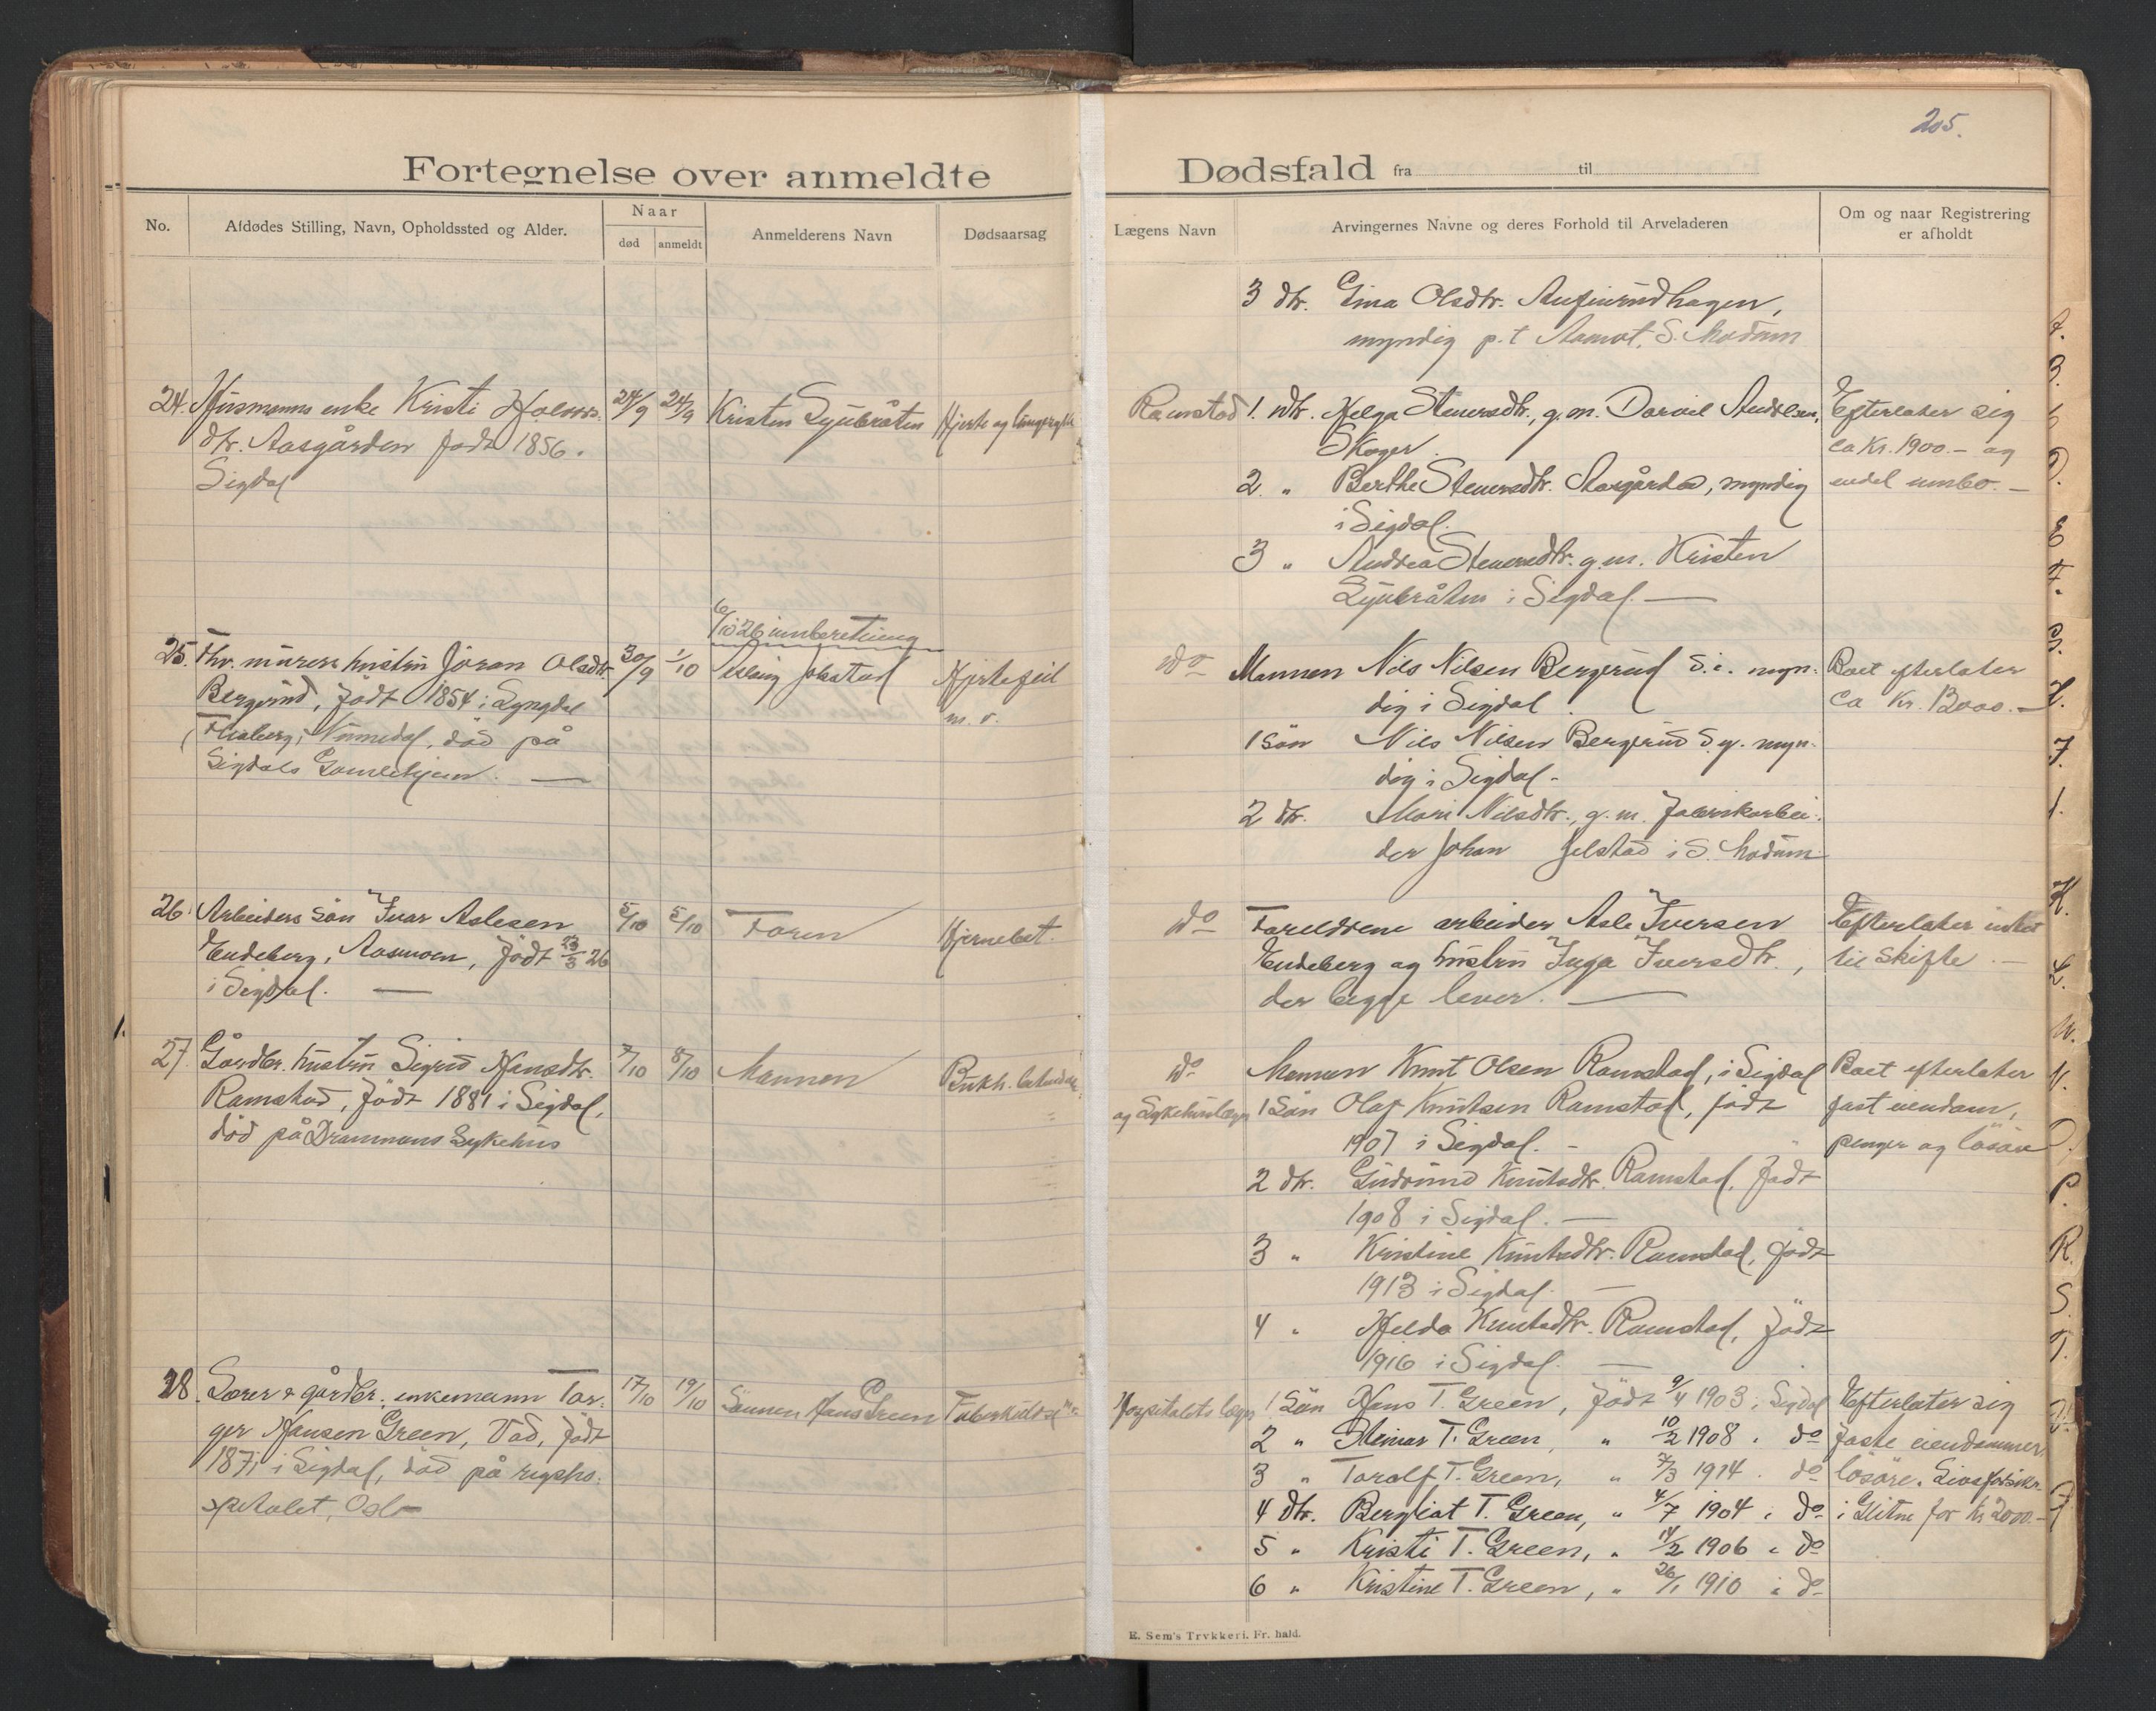 205.
Fortegnelse over anmeldte Dødsfald fra til
No.
Afdødes Stilling, Navn, Opholdssted og Alder.
Naar
død
anmeldt
Anmelderens Navn
Dødsaarsag
Lægens Navn
Arvingernes Navne og deres Forhold til Arveladeren
Om og naar Registrering
er afholdt
3 dtr. Gina Olsdtr.
myndig p.t Aamot, S. Modum
24. Husmanns enke Kristi
dtr. Aasgården født 1856.
Sigdal
24/9 24/9
Kristen Lyubråten
Hjerte og
Ramstad
1. dtr. Helga Steuersdtr., g.m.
Skoger.
2. " Berthe Steuersdtr. Aasgården, myndig
i Sigdal.
3 " Andrea Steuersdtr. g.m. Kristen
Lyubråten i Sigdal. —
Efterlater sig
ca Kr. 1900.- og
endel innbo. —
6/10 26 innberetning
25. Fhv. murers hustru Jöran Olsdtr.
Bergerud, født 1854 i Lyngdal
Flesberg, Numedal, död på
Sigdals Gamlehjem. —
30/9 1/10
Jelstad
Hjertefeil
m.v.
do
Mannen Nils Nilsen Bergerud d.e. myn-
dig i Sigdal.
1 sön Nils Nilsen Bergerud d.y. myn-
dig i Sigdal -
2 dtr. Mari Nilsdtr., g.m. fabrikarbei-
der Johan Jelstad i S. Modum
Boet efterlater
ca Kr. 13000. —
26. Arbeiders sön Ivar Aslesen
Endeberg, Aasmoen, født 23/3 26
i Sigdal. —
5/10 5/10
Faren
Hjernebet.
do
Foreldrene arbeider Asle Iversen
Endeberg og hustru Inga Iversdtr.,
der begge lever. —
Efterlater intet
til skifte. —
27. Gårdbr. hustru Sigrid Hansdtr.
Ramstad, født 1881 i Sigdal,
död på Drammens Sykehus
7/10 8/10
Mannen
Bukh. betendelse
do
og Sykehuslægen
Mannen Knut Olsen Ramstad, i Sigdal
1 Sön Olaf Knutsen Ramstad, født
1907 i Sigdal. -
2 dtr. Gudrund Knutsdtr. Ramstad, født
1908 i Sigdal. —
3 " Kristine Knutsdtr. Ramstad, født
1913 i Sigdal. —
4 " Helda Knutsdtr. Ramstad, født
1916 i Sigdal. —
Boet efterlater
fast eiendom,
penger og lösöre
28. Lærer & gårdbr. enkemann Tor-
ger Hansen Green, Vad, født
1871 i Sigdal, död på rigsho-
spitalet, Oslo
17/10 19/10
Sönnen Hans Green
Hospitalets læge
1 Sön Hans T. Green, født 9/4 1903 i Sigdal
2 " Steinar T. Green, " 10/2 1908 . do
3 " Toralf T. Green, " 7/3 1914 . do
4 dtr. Bergliot T. Green, " 4/7 1904 i do
5 " Kristi T. Green, " 14/2 1906 i do
6 " Kristine T. Green, " 26/1 1910 i do
Efterlater sig
faste eiendommer,
lösöre. Livsforsikr.
i Glitne for kr 2000.—
E. Sem's Trykkeri. Fr. hald.